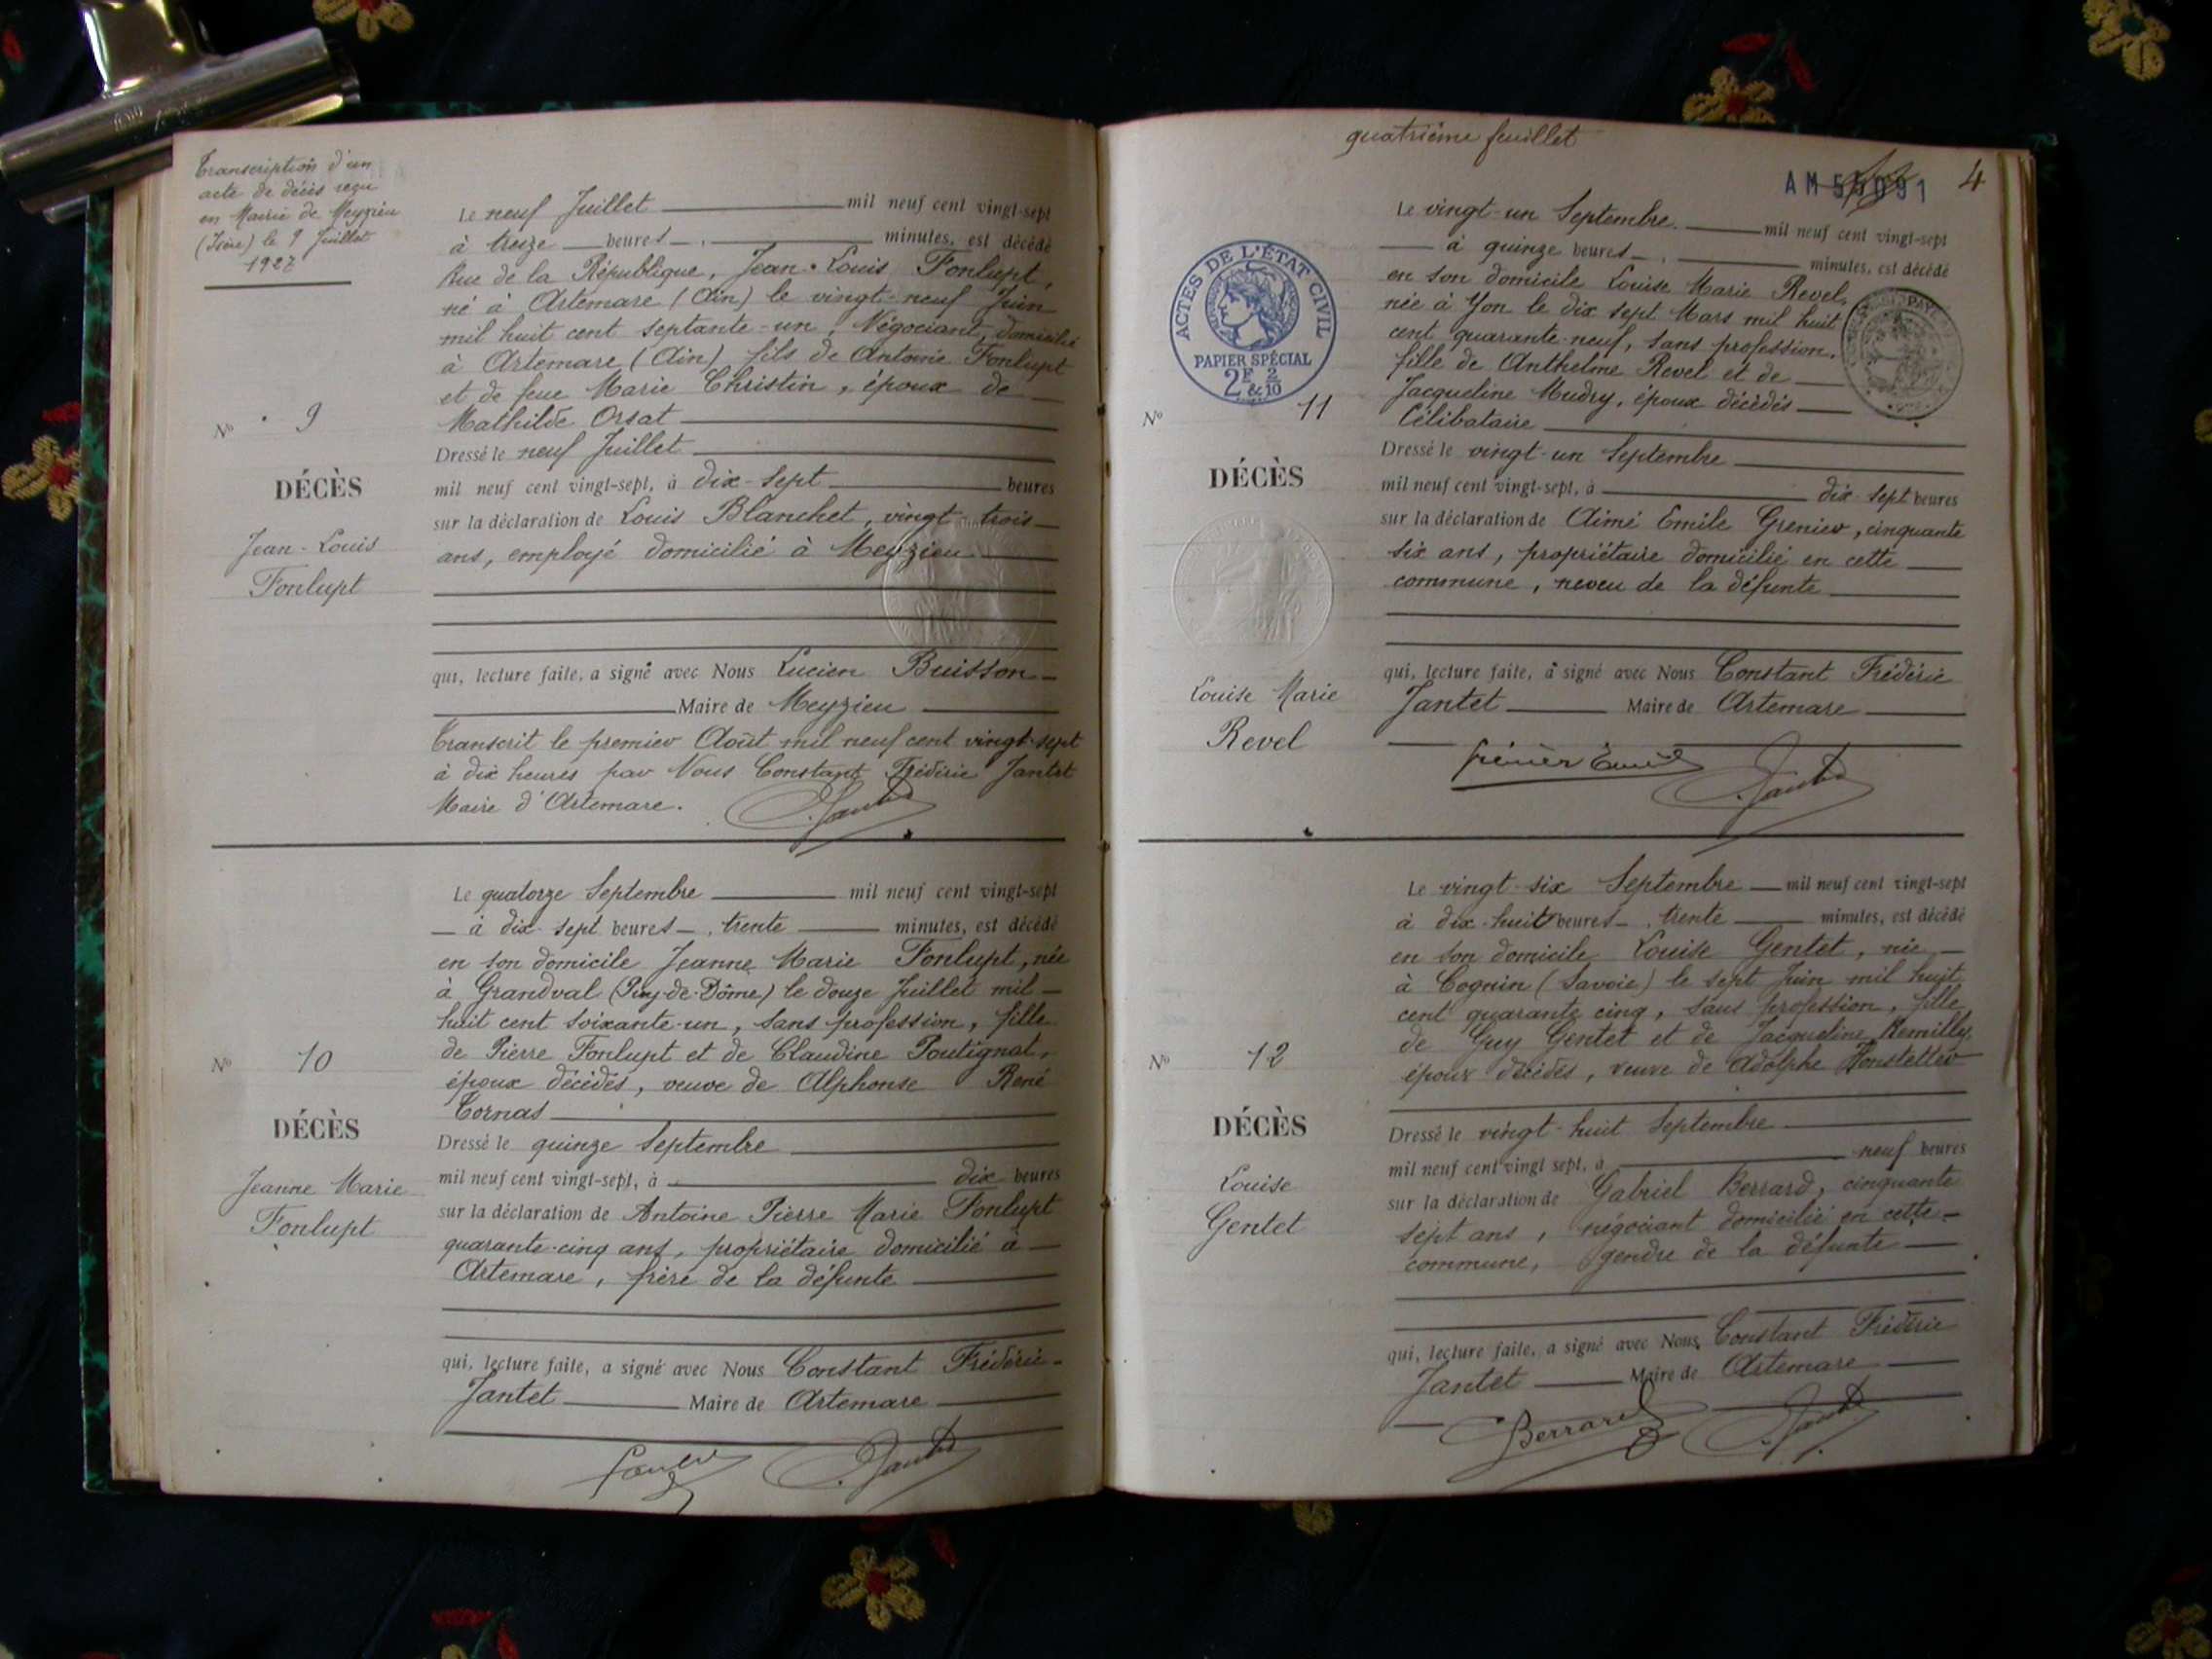 Transcription d'un
acte de décès reçu
en Mairie de Meyzieu
(Isère) le 9 Juillet
1927
Le neuf Juillet mil neuf cent vingt-sept
à treize heures, minutes, est décédé
Rue de la République, Jean-Louis Fonlupt,
né à Artemare (Ain) le vingt-neuf Juin
mil huit cent septante-un, Négociant, domicilié
à Artemare (Ain) fils de Antoine Fonlupt
et de feue Marie Christin, époux de
Mathilde Orsat
Dressé le neuf Juillet
mil neuf cent vingt-sept, à dix-sept heures
sur la déclaration de Louis Blanchet, vingt-trois
ans, employé domicilié à Meyzieu
qui, lecture faite, a signé avec Nous Lucien Buisson
Maire de Meyzieu
Transcrit le premier Août mil neuf cent vingt-sept
à dix heures par Nous Constant Frédéric Jantet
Maire d'Artemare.
Nº 9
DÉCÈS
Jean-Louis
Fonlupt
Le quatorze Septembre mil neuf cent vingt-sept
à dix-sept heures, trente minutes, est décédé
en son domicile Jeanne Marie Fonlupt, née
à Grandval (Puy-de-Dôme) le douze Juillet mil
huit cent soixante-un, sans profession, fille
de Pierre Fonlupt et de Claudine Poutignat,
époux décédés, veuve de Alphonse René
Cornas
Dressé le quinze Septembre
mil neuf cent vingt-sept, à dix heures
sur la déclaration de Antoine Pierre Marie Fonlupt
quarante-cinq ans, propriétaire domicilié à
Artemare, frère de la défunte
qui, lecture faite, a signé avec Nous Constant Frédéric
Jantet Maire de Artemare
Nº 10
DÉCÈS
Jeanne Marie
Fonlupt
quatrième feuillet
AM 55091 4
ACTES DE L'ÉTAT CIVIL
PAPIER SPÉCIAL
2F & 2/10
Le vingt-un Septembre mil neuf cent vingt-sept
à quinze heures, minutes, est décédé
en son domicile Louise Marie Revel,
née à Yon le dix sept Mars mil huit
cent quarante-neuf, sans profession,
fille de Anthelme Revel et de
Jacqueline Mudry, époux décédés
Célibataire
Dressé le vingt-un Septembre
mil neuf cent vingt-sept, à dix-sept heures
sur la déclaration de Aimé Emile Grenier, cinquante
six ans, propriétaire domicilié en cette
commune, neveu de la défunte
qui, lecture faite, a signé avec Nous Constant Frédéric
Jantet Maire de Artemare
Nº 11
DÉCÈS
Louise Marie
Revel
Le vingt-six Septembre mil neuf cent vingt-sept
à dix-huit heures, trente minutes, est décédé
en son domicile Louise Gentet, née
à Cognin (Savoie) le sept Juin mil huit
cent quarante cinq, sans profession, fille
de Guy Gentet et de Jacqueline Remilly,
époux décédés, veuve de Adolphe Honstetter
Dressé le vingt-huit Septembre
mil neuf cent vingt sept, à neuf heures
sur la déclaration de Gabriel Berrard, cinquante
sept ans, négociant domicilié en cette
commune, gendre de la défunte
qui, lecture faite, a signé avec Nous Constant Frédéric
Jantet Maire de Artemare
Berrard
Nº 12
DÉCÈS
Louise
Gentet